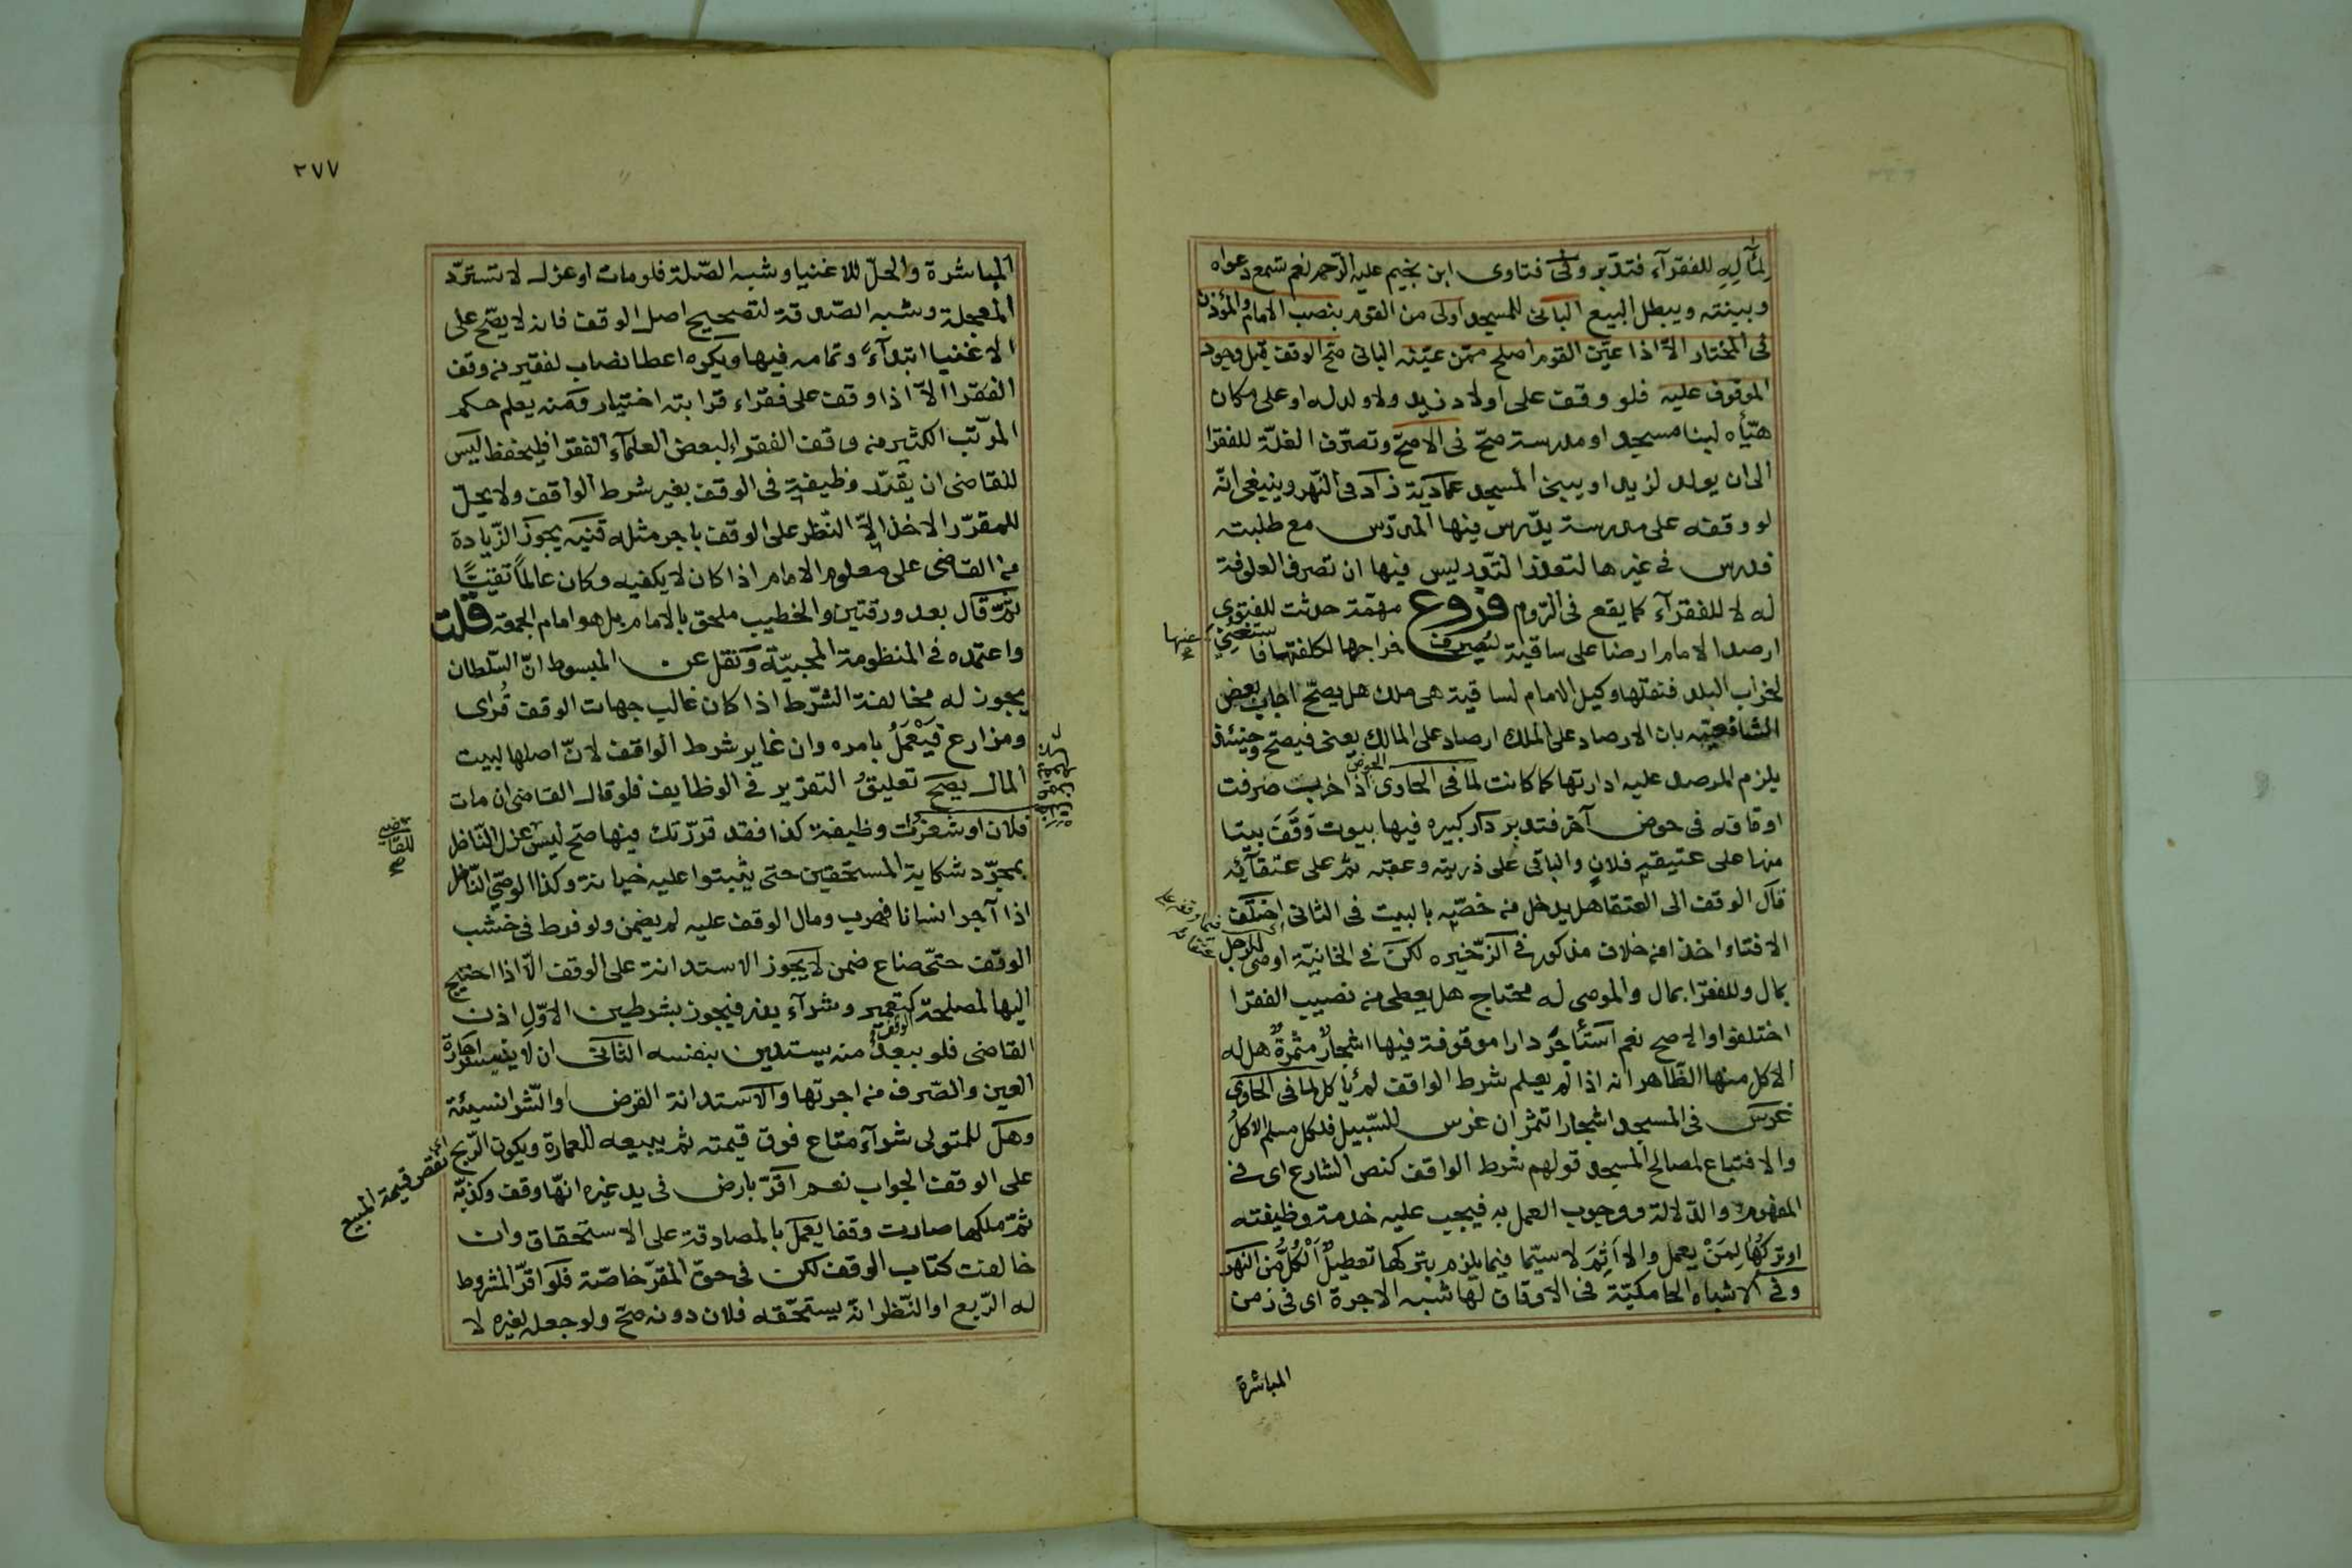 لمآله للفقرآء فتدبر وفى فتاوى ابن نجيم عليه الرحمه نعم تسمع دعواه
وبينته ويبطل البيع البانى للمسجد اولى من القوم بنصب الامام والمؤذن
فى المختار الّا اذا عيّن القوم اصلح ممّن عيّنه البانى صحّ الوقف قبل وجود
الموقوف عليه فلو وقف على اولاد زيد ولا ولد له او على مكان
هيّأه لبنا مسجد او مدرسة صحّ فى الاصحّ وتصرّف الغلّة للفقرا
الى ان يولد لزيد او يبنى المسجد عماديّة زاد فى النّهر وينبغى انّه
لو وقفه على مدرسة يدّرس فيها المدرّس مع طلبته
فدرس فى غيرها لتعذر التّدريس فيها ان تصرف العلوفة
له لا للفقرآء كما يقع فى الرّوم فروع مهمّة حدثت للفتوى
ارصد الامام ارضا على ساقية ليصرف خراجها لكلفتها فاستغنى
عنها
لخراب البلد فنقلها وكيل الامام لساقية هى ملك هل يصحّ اجاب بعض
الشافعيّه بان الارصاد على الملك ارصاد على المالك يعنى فيصح وحينئذ
يلزم المرصد عليه ادارتها كما كانت لما فى الحاوى الحوض اذا خربت صرفت
اوقافه فى حوض آخر فتدبر دار كبيره فيها بيوت وقف بيتا
منها على عتيقه فلان والباقى على ذريته وعقبه ثم على عتقآئه
قآل الوقف الى العتقا هل يدخل من خصّه بالبيت فى الثانى اختلف
فيما وقفه على عتقائه
الافتاء اخذا من خلاف مذكور فى الذّخيره لكن فى الخانيّة اوصى لرجل
بمال وللفقرا بمال والموصى له محتاج هل يعطى من نصيب الفقرا
اختلفوا والاصح نعم استأجر دارا موقوفة فيها اشجار مثمرة هل له
الاكل منها الظّاهر انه اذا لم يعلم شرط الواقف لم يأكل لما فى الحاوى
غرس فى المسجد اشجارا تثمر ان غرس للسّبيل فلكل مسلم الاكل
والا فتباع لمصالح المسجد قولهم شرط الواقف كنص الشارع اى فى
المفهوم والدّلالة ووجوب العمل به فيجب عليه خدمة وظيفته
او تركها لمن يعمل والا اثم لا سيّما فيما يلزم بتركها تعطيل الكل من النهر
وفى الاشباه الجامكيّة فى الاوقاف لها شبه الاجرة اى فى زمن
المباشرة
٢٧٧
المباشرة والحلّ للاغنيا وشبه الصّلة فلو مات او عزل لا تستردّ
المعجلة وشبه الصّدقة لتصحيح اصل الوقف فانه لا يصّح على
الاغنيا ابتدآء وتمامه فيها ويكره اعطا نصاب لفقير من وقف
الفقرا الّا اذا وقف على فقراء قرابته اختيار ومنه يعلم حكم
المرتّب الكثير من وقف الفقراء لبعض العلمآء الفقرا فليحفظ ليس
للقاضى ان يقدّر وظيفة فى الوقف بغير شرط الواقف ولا يحلّ
للمقرّر الاخذ الّا النّظر على الوقف باجر مثله قنيه يجوز الزّيادة
من القاضى على معلوم الامام اذا كان لا يكفيه وكان عالماً تقيّاً
ثمّ قال بعد ورقتين والخطيب ملحق بالامام بل هو امام الجمعه قلت
واعتمده فى المنظومة المحبيّة ونقل عن المبسوط انّ السّلطان
يجوز له مخالفة الشّرط اذا كان غالب جهات الوقف قُرى
ومزارع فيَعْمَلُ بامره وان غاير شرط الواقف لانّ اصلها لبيت
المال يصح تعليقُ التقرير فى الوظايف فلو قال القاضى ان مات
فلان او شغرت وظيفة كذا فقد قرّرتك فيها صح ليس عزل النّاظر
للقاضى صح
بمجرّد شكاية المستحقين حتى يثبتوا عليه خيانة وكذا الوصّى النّاظر
اذا آجر انسانا فهرب ومال الوقف عليه لم يضمن ولو فرط فى خشب
الوقف حتّى ضاع ضمن لا يجوز الاستدانة على الوقف الّا اذا احتيج
اليها لمصلحة كتعمير وشرآء بذر فيجوز بشرطين الاوّل اذن
القاضى فلو ببعد منه يستدين بنفسه الثانى ان لا يتيسر اجارة
العين والصّرف من اجرتها والاستدانة القرض والشّرا نسيئة
وهل للمتولى شرآء متاع فوق قيمته ثم يبيعه للعمارة ويكون الرّبح
اى نقص قيمة المبيع
على الوقف الجواب نعم اقرّ بارض فى يد غيره انّها وقف وكذبّه
ثمّ ملكها صارت وقفا يعمل بالمصادقة على الاستحقاق وان
خالفت كتاب الوقف لكن فى حقّ المقرّ خاصّة فلو اقرّ المشروط
له الرّيع او النّظر انّه يستحّقه فلان دونه صحّ ولو جعله لغيره لا